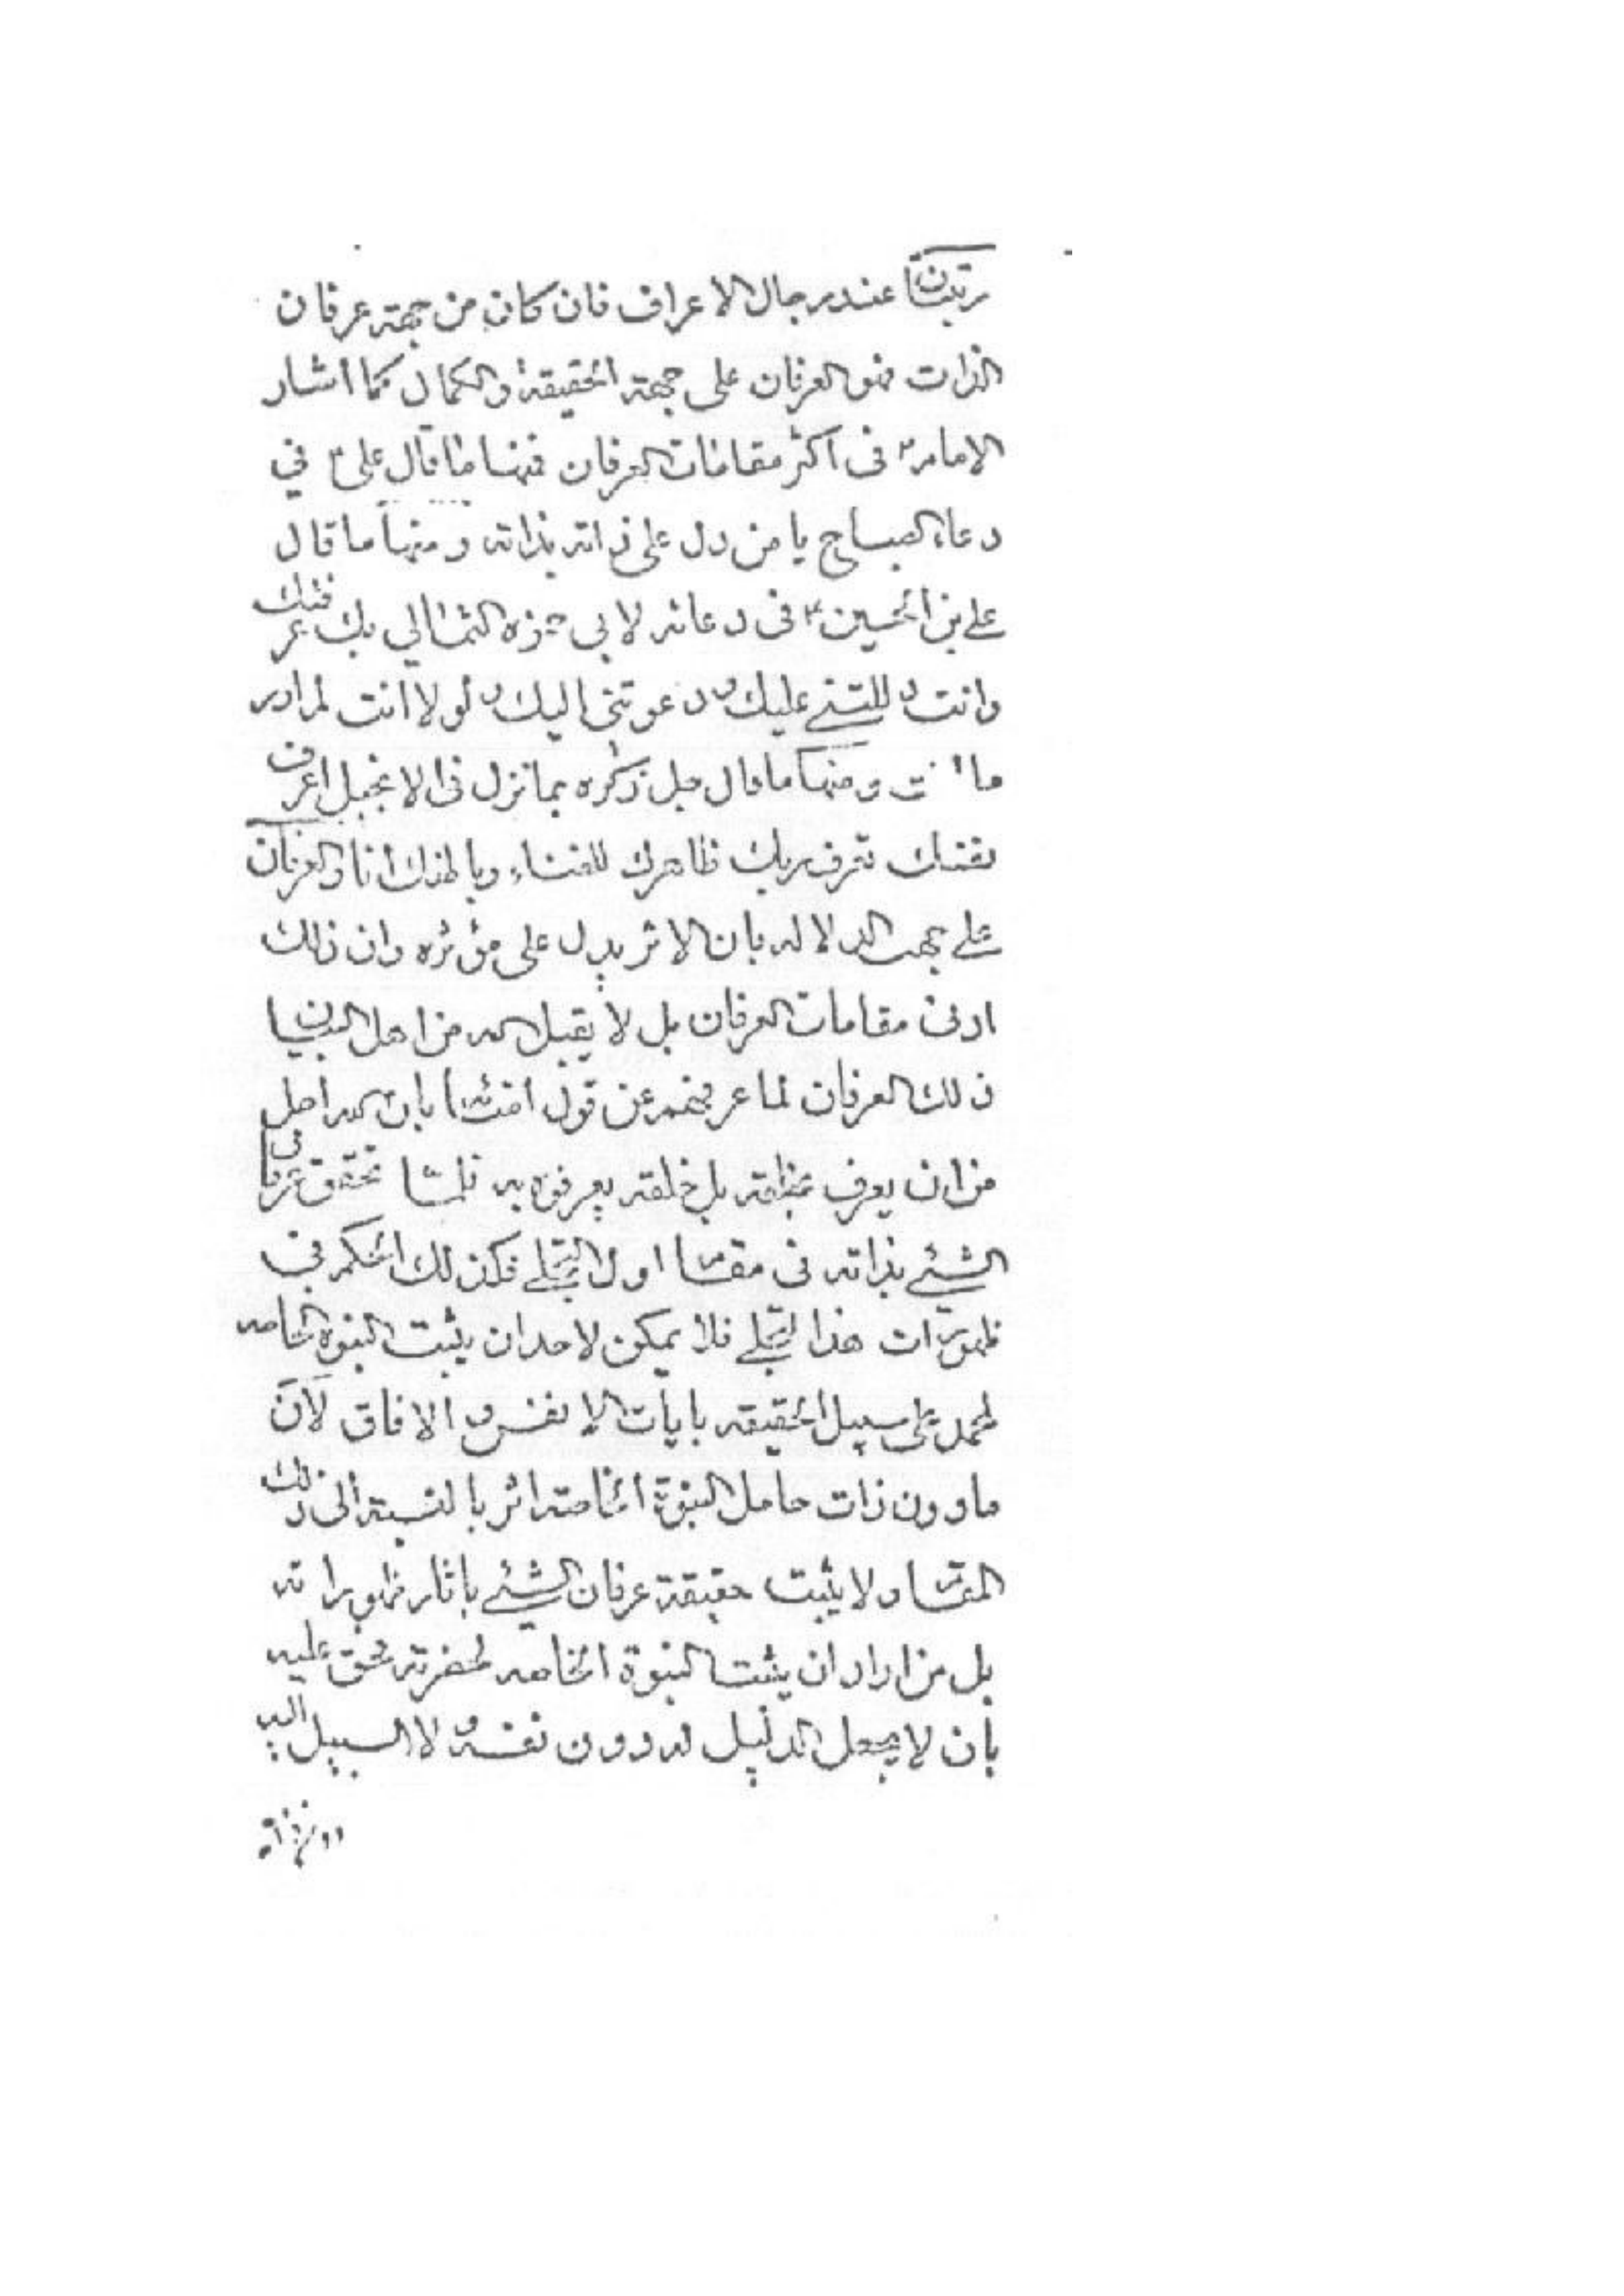 رتبتان عند رجال الاعراف فان كان من جهة عرفان
الذات فهو العرفان على جهة الحقيقة والكمال كما اشار
الامام ع فى اكثر مقامات العرفان فمنها ما قال على ع في
دعاء الصباح يا من دل على ذاته بذاته و منها ما قال
علي بن الحسين ع فى دعائه لابي حمزه الثمالي بك عرفتك
وانت دللتني عليك و دعوتنى اليك و لولا انت لم ادر
ما انت و منها ما قال جل ذكره بما نزل فى الانجيل اعرف
نفسك تعرف ربك ظاهرك للفناء وباطنك انا والعرفان
علي جهت الدلاله بان الاثر يدل على مؤثره وان ذلك
ادنى مقامات العرفان بل لا يقبل الله من اهل البيان
ذلك العرفان لما عرفهم عن قول ائمتنا بان الله اجل
من ان يعرف بخلقه بل خلقه يعرفون به فلما تحقق عرفان
الشئي بذاته فى مقام اول التجلي فكذلك الحكم في
ظهورات هذا التجلي فلا يمكن لاحد ان يثبت النبوة الخاصه
لمحمد ص على سبيل الحقيقه بايات الانفس و الافاق لان
ما دون ذات حامل النبوة الخاصة اثر بالنسبة الى ذلك
المقام و لا يثبت حقيقة عرفان الشئي باثار ظهوراته
بل من اراد ان يثبت النبوة الخاصه لحضرته فحق عليه
بان لا يجعل الدليل له دون نفسه و لا السبيل اليه
دون ذاته